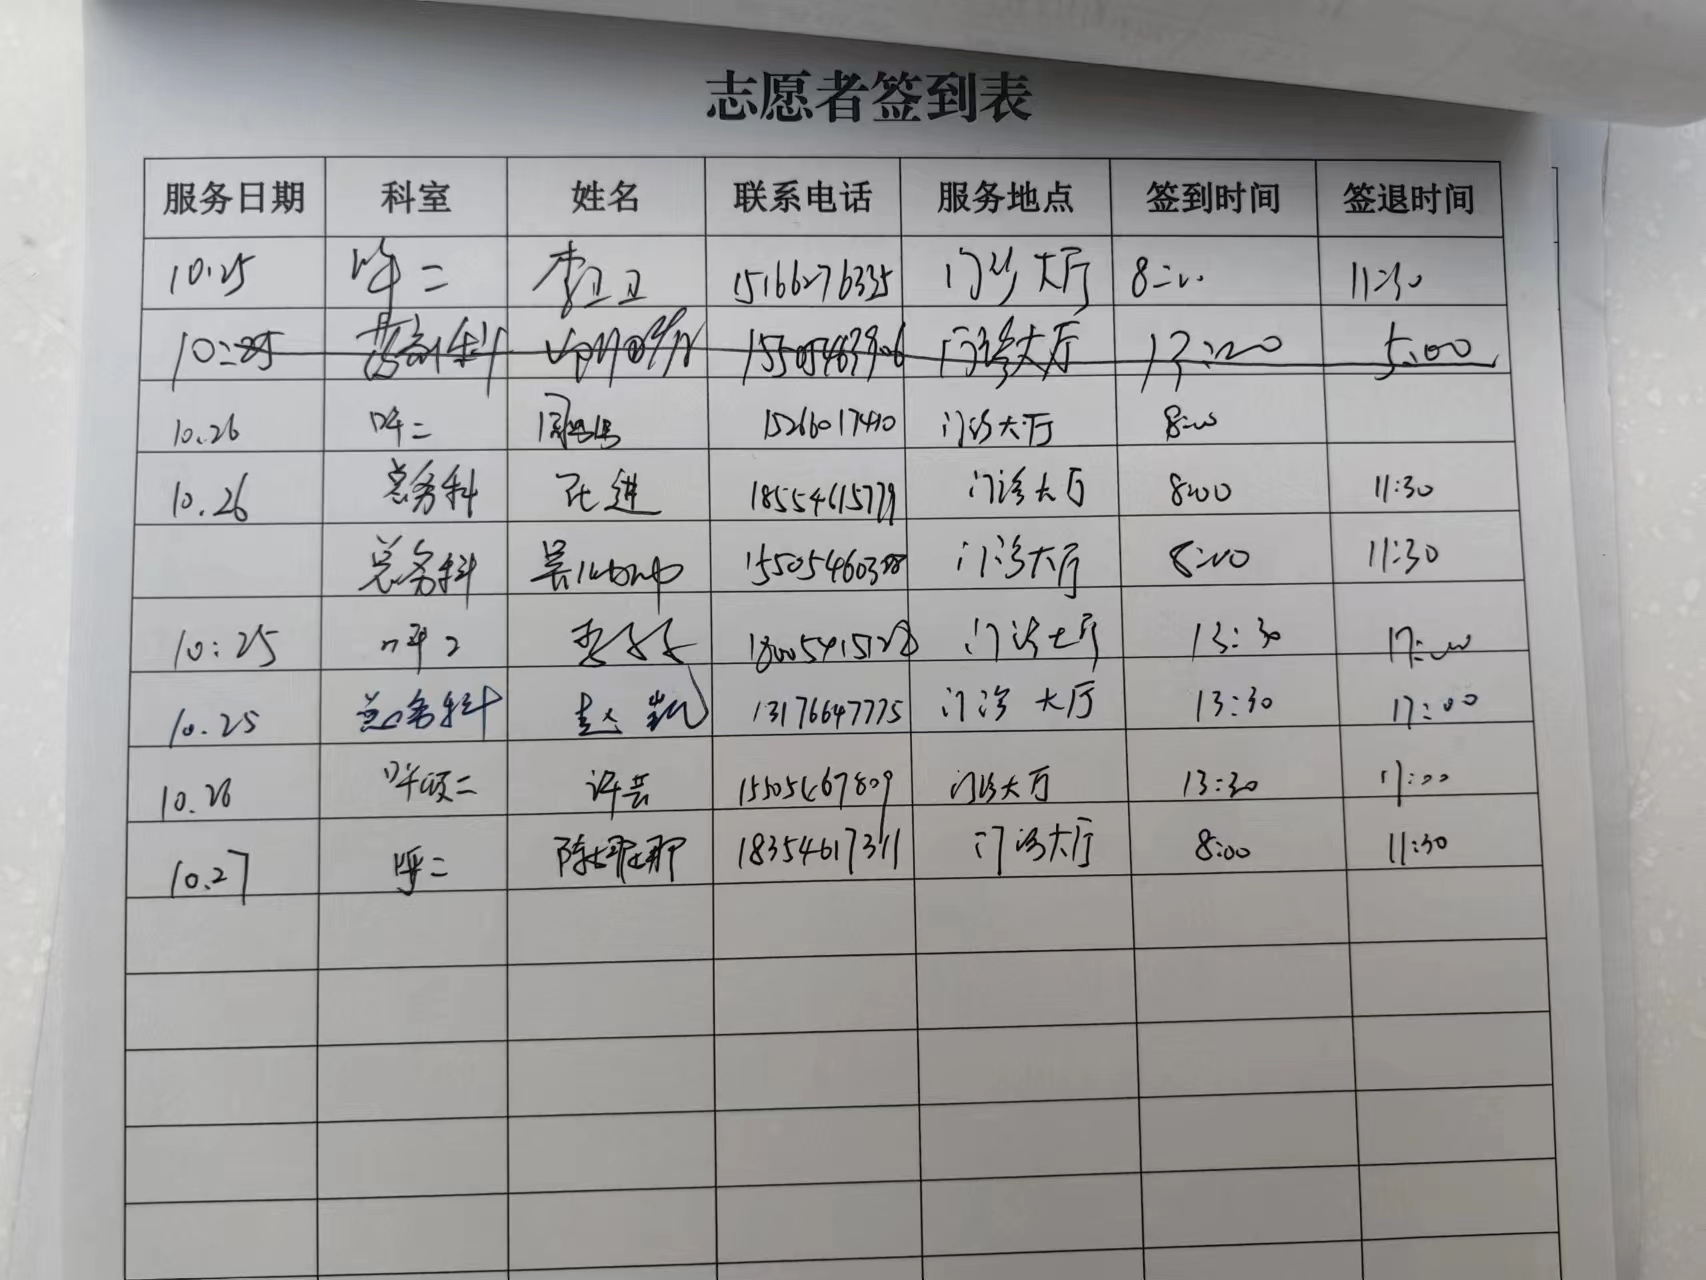 志愿者签到表
服务日期 科室 姓名 联系电话 服务地点 签到时间 签退时间
10.25 呼二 李卫卫 15166276335 门诊大厅 8:00 11:30
10:25 门诊大厅 5:00
10.26 呼二 15266017410 门诊大厅 8:00
10.26 总务科 进 18554615779 门诊大厅 8:00 11:30
总务科 吴 门诊大厅 8:00 11:30
10:25 呼二 门诊大厅 13:30 17:00
10.25 总务科 赵凯 13176647775 门诊大厅 13:30 17:00
10.26 呼吸二 许芸 15505467809 门诊大厅 13:30 17:00
10.27 呼二 陈娜娜 18354617311 门诊大厅 8:00 11:30